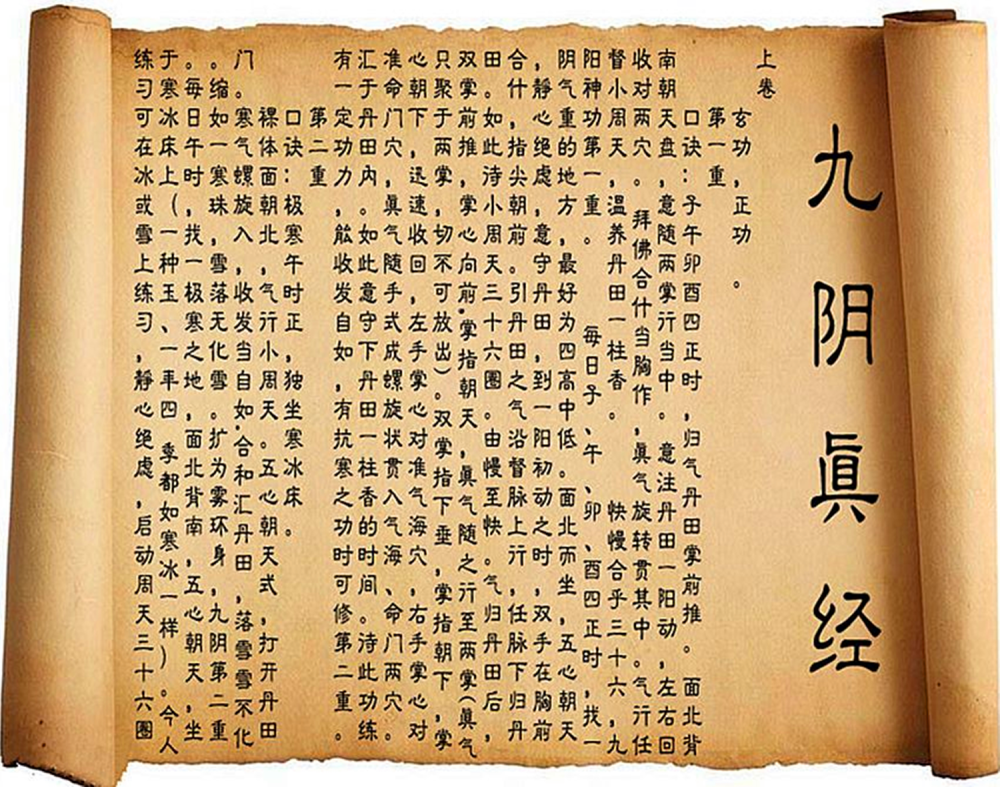 九阴眞经
上卷
玄功，正功。
第一重
口诀：子午卯酉四正时，归气丹田掌前推。面北背
南朝天盘，意随两掌行当中。意注丹田一阳动，左右回
收对两穴。拜佛合什当胸作，眞气旋转贯其中。气行任
督小周天，温养丹田一柱香。快慢合乎三十六，九
阳神功第一重。每日子、午、卯、酉四正时，找一
阴气重的地方，最好为四高中低。面北而坐，五心朝天
，静心绝虑，意守丹田，到一阳初动之时，双手在胸前
合什，指尖朝前。引丹田之气沿督脉上行，任脉下归丹
田。如此诗小周天三十六圈。由慢至快。气归丹田后，
双掌前推，掌心向前.掌指朝天，眞气随之行至两掌（眞气
只聚于两掌，切不可放出）。双掌指下垂，掌指朝下，掌
心朝下，迅速收回，左手掌心对准气海穴，右手掌心对
准命门穴，眞气随手式成螺旋状贯入气海、命门两穴。
汇于丹田內。如此意守下丹田一柱香的时间。诗此功练
有一定功力，能收发自如，有抗寒之功时可修第二重。
第二重
口诀：极寒午时正，独坐寒冰床。
裸体面朝北，气行小周天。五心朝天式，打开丹田
门。寒气螺旋入，收发当自如.合和汇丹田，落雪雪不化
。缩如一寒珠，雪落无化雪。扩为雾环身，九阴第二重
。每日午时，找一极寒之地，面北背南，五心朝天，坐
于寒冰床上（一种玉、一年四季都如寒冰一样）。今人
练习可在冰或雪上练习，静心绝虑，启动周天三十六圈